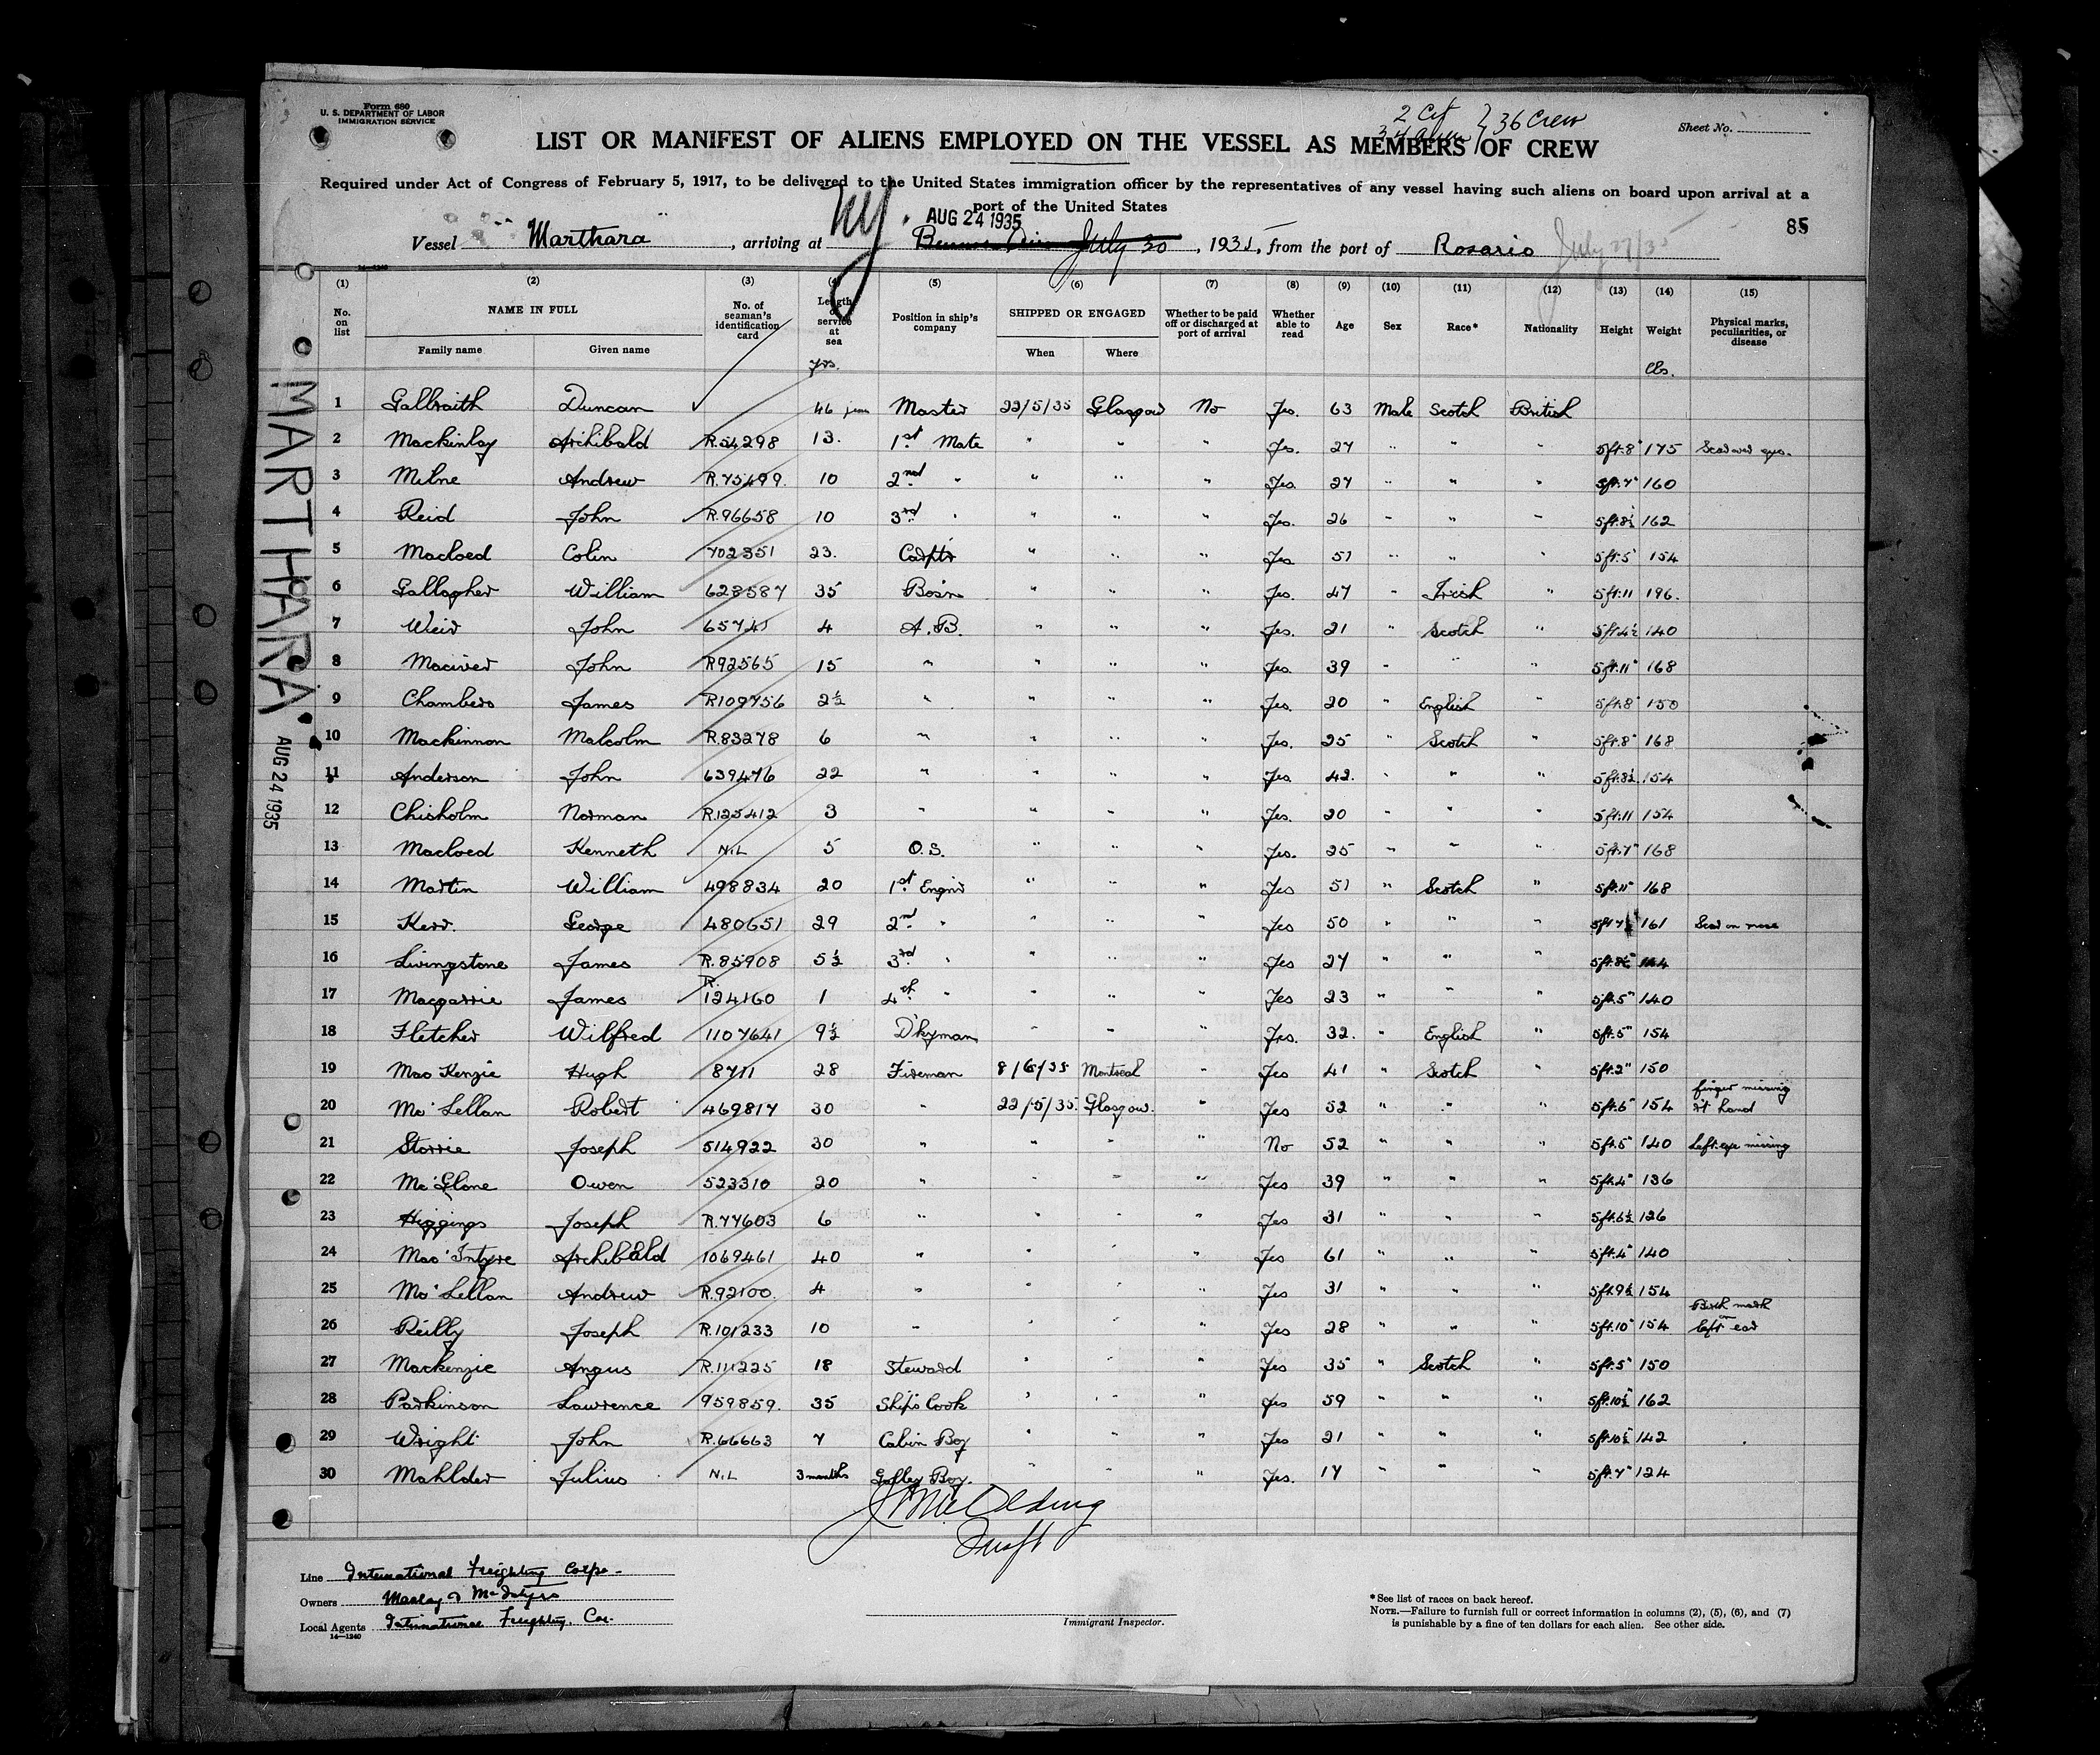 Form 680
U. S. DEPARTMENT OF LABOR
IMMIGRATION SERVICE
2 Cit
34 alien } 36 Crew
Sheet No.
LIST OR MANIFEST OF ALIENS EMPLOYED ON THE VESSEL AS MEMBERS OF CREW
Required under Act of Congress of February 5, 1917, to be delivered to the United States immigration officer by the representatives of any vessel having such aliens on board upon arrival at a
port of the United States
NY. AUG 24 1935
85
Vessel Marthara, arriving at July 30, 1935, from the port of Rosario July 27/35
14-1240
(1) (2) (3) (4) (5) (6) (7) (8) (9) (10) (11) (12) (13) (14) (15)
No. on list NAME IN FULL No. of seaman's identification card Length of service at sea Position in ship's company SHIPPED OR ENGAGED Whether to be paid off or discharged at port of arrival Whether able to read Age Sex Race* Nationality Height Weight Physical marks, peculiarities, or disease
Family name Given name When Where
yrs. lbs.
1 Galbraith Duncan 46 Master 22/5/35 Glasgow No Yes. 63 Male Scotch British
2 Mackinlay Archibald R.54298 13. 1st Mate " " " Yes. 27 " " " 5ft.8" 175 Scar over eye.
3 Milne Andrew R.75499. 10 2nd " " " " Yes. 27 " " " 5ft.7" 160
4 Reid John R.96658 10 3rd " " " " Yes. 26 " " " 5ft.8½ 162
5 Macloed Colin 702351 23. Carptr " " " Yes 51 " " " 5ft.5" 154
6 Gallagher William 628587 35 Bosn " " " Yes. 47 " Irish " 5ft.11 196.
7 Weir John 65741 4 A.B. " " " Yes. 21 " Scotch " 5ft.4½ 140
8 Maciver John R92565 15 " " " " Yes. 39 " " " 5ft.11" 168
9 Chambers James R109756 2½ " " " " Yes. 20 " English " 5ft.8" 150
10 Mackinnon Malcolm R.83278 6 " " " " Yes. 25 " Scotch " 5ft.8" 168
11 Anderson John 639476 22 " " " " Yes. 42. " " " 5ft.8½ 154
12 Chisholm Norman R.125412 3 " " " " Yes. 20 " " " 5ft.11 154
13 Macloed Kenneth NIL 5 O.S. " " " Yes. 25 " " " 5ft.7" 168
14 Martin William 498834 20 1st Enginr " " " Yes 51 " Scotch " 5ft.11" 168
15 Kerr. George 480651 29 2nd " " " " Yes 50 " " " 5ft.7 161 Scar on nose
16 Livingstone James R.85908 5½ 3rd " " " " Yes 27 " " " 5ft.8½"
17 Macquarrie James R.124160 1 4th " " " " Yes 23 " " " 5ft.5" 140
18 Fletcher Wilfred 1107641 9½ D'kyman " " " Yes. 32. " English " 5ft.5" 154
19 Mac Kenzie Hugh 8711 28 Fireman 8/6/35 Montreal " Yes 41 " Scotch " 5ft.2" 150
20 Mc Lellan Robert 469817 30 " 22/5/35. Glasgow. " Yes 52 " " " 5ft.6" 154 finger missing rt hand
21 Storrie Joseph 514922 30 " " " " No 52 " " " 5ft.5" 140 Left eye missing
22 Mc Glone Owen 523310 20 " " " " Yes 39 " " " 5ft.4" 136
23 Higgings Joseph R.77603 6 " " " " Yes 31 " " " 5ft.6½ 126
24 Mac Intyre Archibald 1069461 40 " " " " Yes 61 " " " 5ft.4" 140
25 Mc Lellan Andrew R.92100. 4 " " " " Yes 31 " " " 5ft.9½ 154
26 Reilly Joseph R.101233 10 " " " " Yes 28 " " " 5ft.10" 154 Birth mark on left ear
27 Mackenzie Angus R.111225 18 Steward " " " Yes 35 " Scotch " 5ft.5" 150
28 Parkinson Lawrence 959859. 35 Ships Cook " " " Yes 59 " " " 5ft.10½" 162
29 Wright John R.66663 7 Cabin Boy " " " Yes 21 " " " 5ft.10½" 142
30 Mahlder Julius NIL 3 months Galley Boy. " " " Yes. 17 " " " 5ft.7" 124
MARTHARA.
AUG 24 1935
Line International Freighting Corpn.
Owners Maclay & McIntyre
Local Agents International Freighting. Cor.
14-1240
Immigrant Inspector.
*See list of races on back hereof.
NOTE.—Failure to furnish full or correct information in columns (2), (5), (6), and (7)
is punishable by a fine of ten dollars for each alien. See other side.